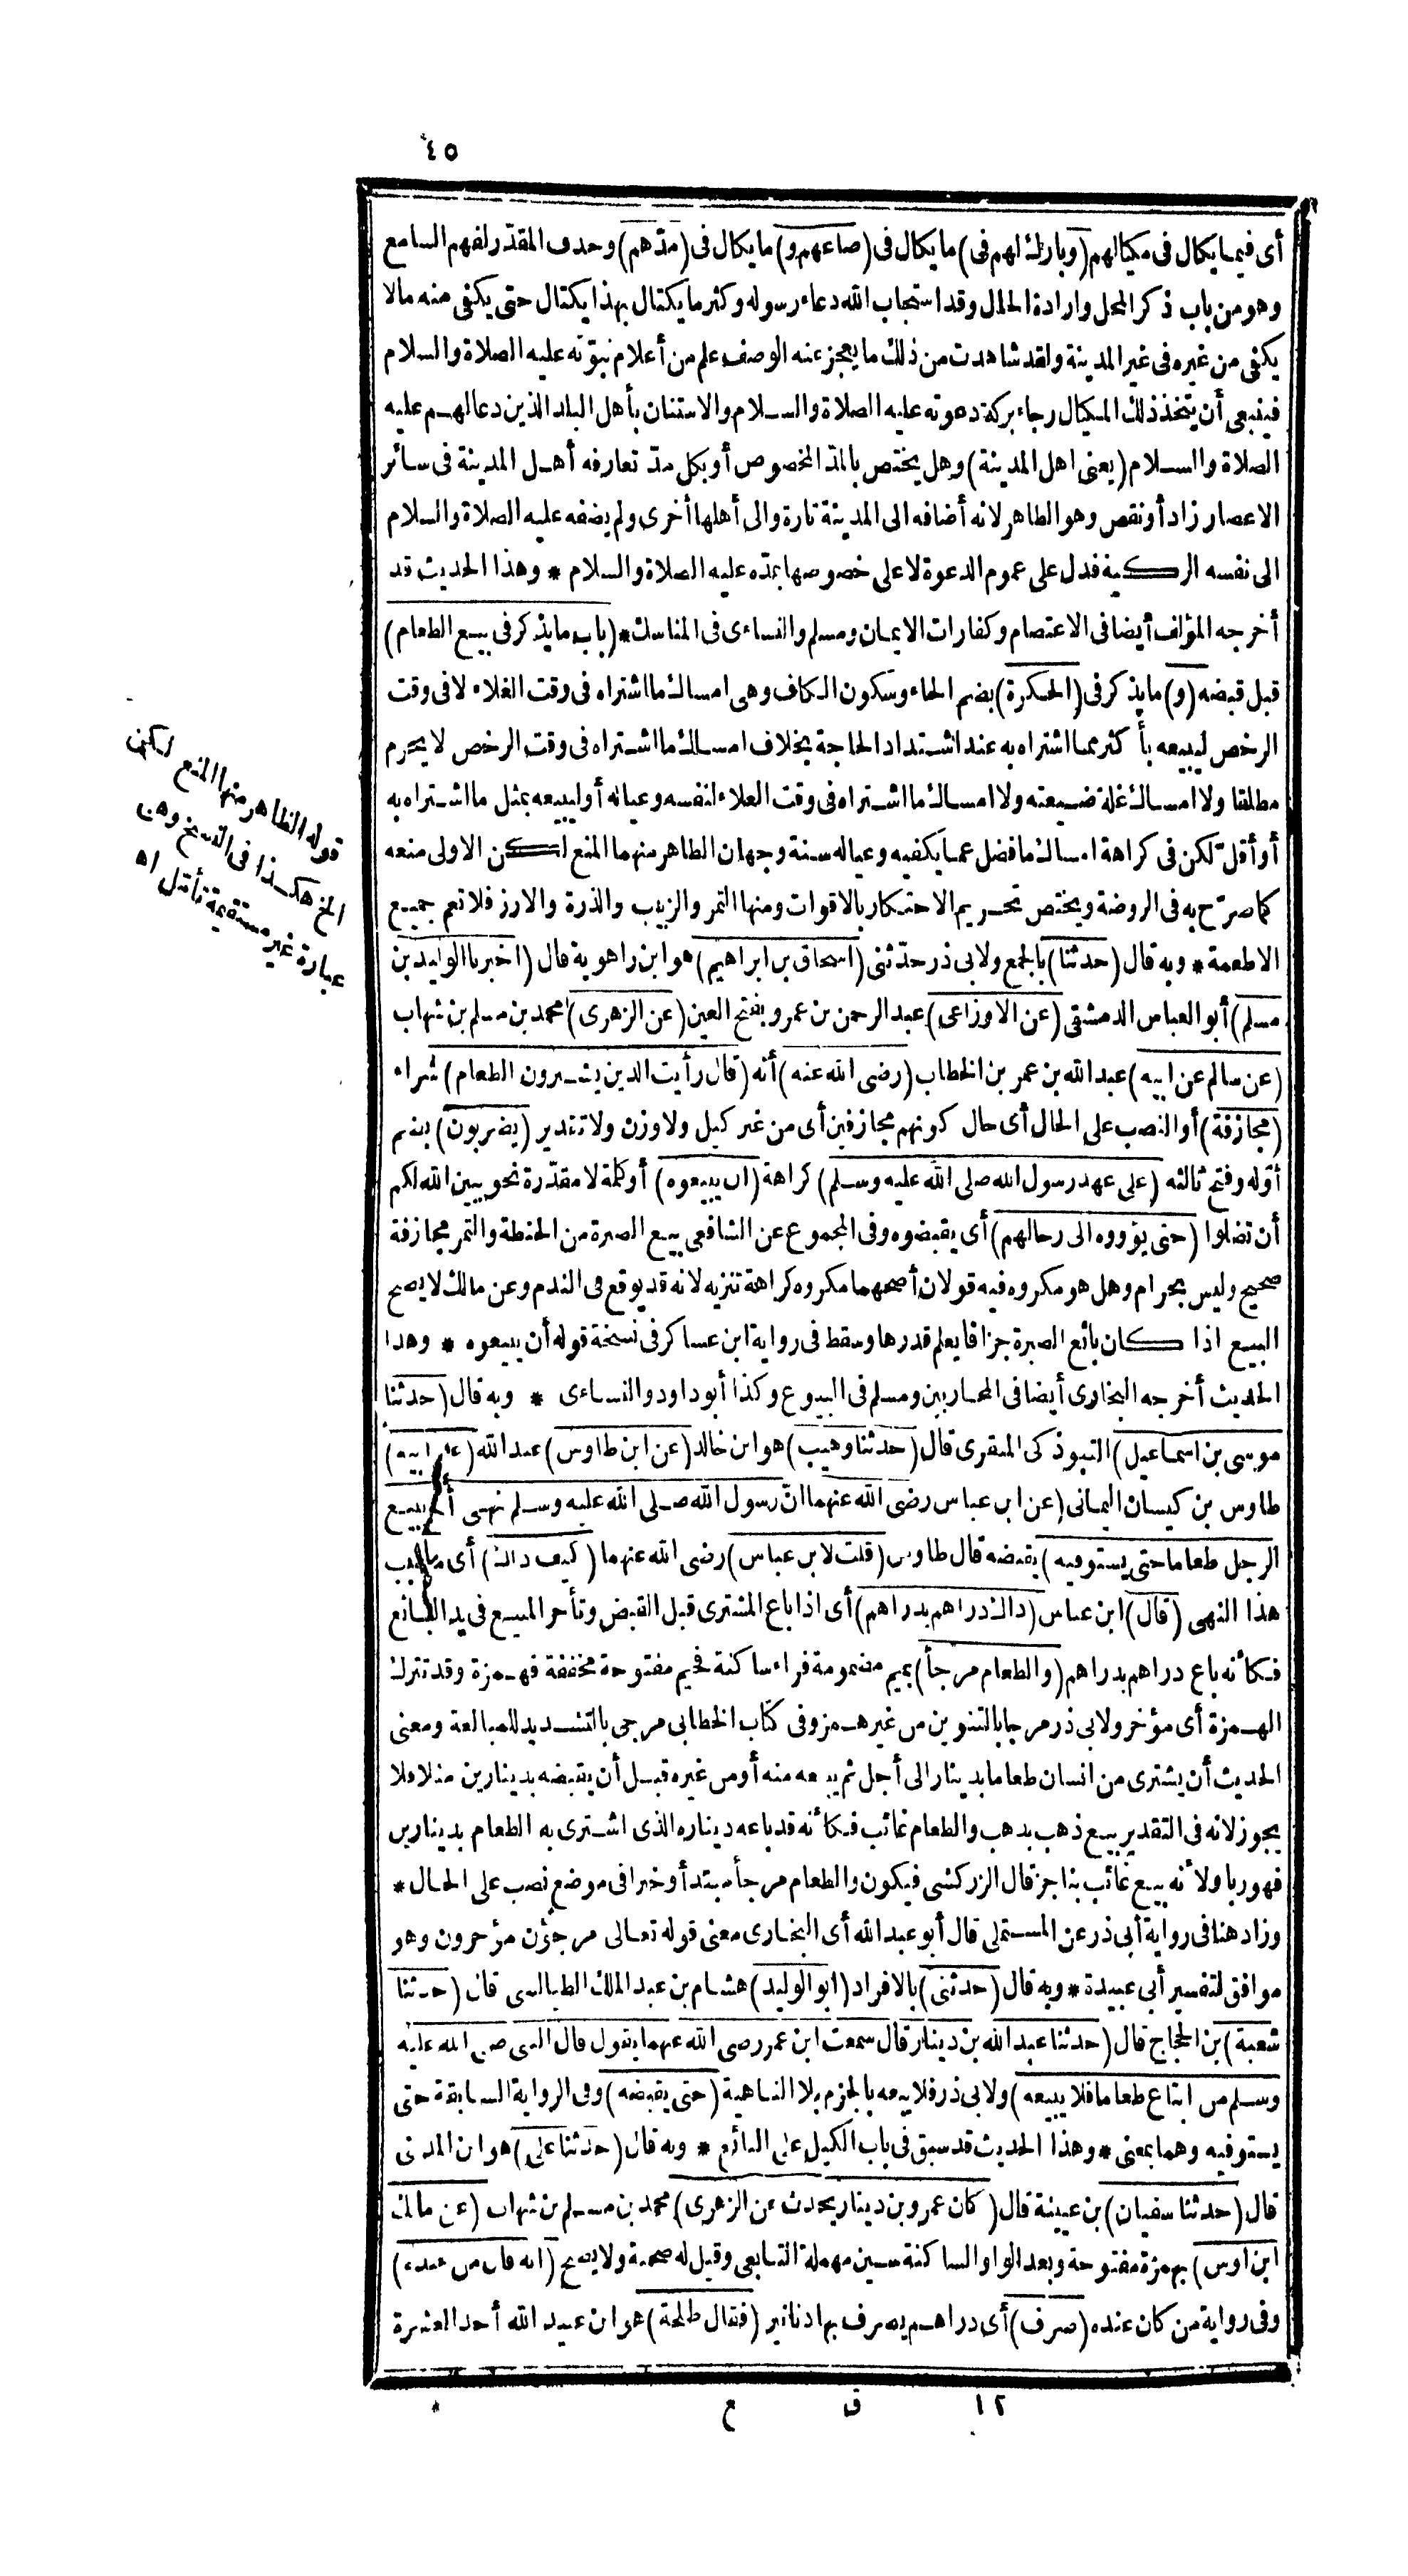 ٤٥
أى فيما يكال فى مكيالهم (وبارك لهم فى) ما يكال فى (صاعهم و) ما يكال فى (مدّهم) وحذف المقدّر لفهم السامع
وهو من باب ذكر المحل وارادة الحال وقد استجاب الله دعاء رسوله وكثر ما يكتال بهذا يكتال حتى يكفى منه مالا
يكفى من غيره فى غير المدينة ولقد شاهدت من ذلك ما يعجز عنه الوصف علم من أعلام نبوّته عليه الصلاة والسلام
فينبغى أن يتخذ ذلك المكيال رجاء بركة دعوته عليه الصلاة والسلام والاستنان بأهل البلد الذين دعا لهم عليه
الصلاة والسلام (يعنى اهل المدينة) وهل يختص بالمدّ المخصوص أو بكل مدّ تعارفه أهل المدينة فى سائر
الاعصار زاد أو نقص وهو الظاهر لانه أضافه الى المدينة تارة والى أهلها أخرى ولم يضفه عليه الصلاة والسلام
الى نفسه الزكية فدل على عموم الدعوة لا على خصوصها بمدّه عليه الصلاة والسلام * وهذا الحديث قد
أخرجه المؤلف أيضا فى الاعتصام وكفارات الايمان ومسلم والنساءى فى المناسك * (باب ما يذكر فى بيع الطعام)
قبل قبضه (و) ما يذكر فى (الحكرة) بضم الحاء وسكون الكاف وهى امساك ما اشتراه فى وقت الغلاء لا فى وقت
الرخص ليبيعه بأكثر مما اشتراه به عند اشتداد الحاجة بخلاف امساك ما اشتراه فى وقت الرخص لا يحرم
مطلقا ولا امساك غلة ضيعته ولا امساك ما اشتراه فى وقت الغلاء لنفسه وعياله أو ليبيعه بمثل ما اشتراه به
أو أقلّ لكن فى كراهة امساك ما فضل عما يكفيه وعياله سنة وجهان الظاهر منهما المنع لكن الاولى منعه
كما صرّح به فى الروضة ويختص تحريم الاحتكار بالاقوات ومنها التمر والزبيب والذرة والارز فلا تعم جميع
الاطعمة * وبه قال (حدثنا) بالجمع ولابى ذر حدّثنى (اسحاق بن ابراهيم) هو ابن راهويه قال (اخبرنا الوليد بن
مسلم) أبو العباس الدمشقى (عن الاوزاعى) عبد الرحمن بن عمرو بفتح العين (عن الزهرى) محمد بن مسلم بن شهاب
(عن سالم عن ابيه) عبد الله بن عمر بن الخطاب (رضى الله عنه) أنه (قال رأيت الذين يشترون الطعام) شراء
(مجازفة) أو النصب على الحال أى حال كونهم مجازفين أى من غير كيل ولا وزن ولا تقدير (يضربون) بضم
أوّله وفتح ثالثه (على عهد رسول الله صلى الله عليه وسلم) كراهة (ان يبيعوه) أو كلمة لا مقدّرة نحو يبين الله لكم
أن تضلوا (حتى يؤووه الى رحالهم) أى يقبضوه وفى المجموع عن الشافعى بيع الصبرة من الحنطة والتمر مجازفة
صحيح وليس بحرام وهل هو مكروه فيه قولان أصحهما مكروه كراهة تنزيه لانه قد يوقع فى الندم وعن مالك لا يصح
البيع اذا كان بائع الصبرة جزافا يعلم قدرها وسقط فى رواية ابن عساكر فى نسخة قوله أن يبيعوه * وهذا
الحديث أخرجه البخارى أيضا فى المحاربين ومسلم فى البيوع وكذا أبو داود والنساءى * وبه قال (حدثنا
موسى بن اسماعيل) التبوذكى المنقرى قال (حدثنا وهيب) هو ابن خالد (عن ابن طاوس) عبد الله (عن ابيه)
طاوس بن كيسان اليمانى (عن ابن عباس رضى الله عنهما انّ رسول الله صلى الله عليه وسلم نهى أن يبيع
الرجل طعاما حتى يستوفيه) يقبضه قال طاوس (قلت لابن عباس) رضى الله عنهما (كيف ذاك) أى ما سبب
هذا النهى (قال) ابن عباس (ذاك دراهم بدراهم) أى اذا باع المشترى قبل القبض وتأخر المبيع فى يد البائع
فكأنه باع دراهم بدراهم (والطعام مرجأ) بميم مضمومة فراء ساكنة فجيم مفتوحة مخففة فهمزة وقد تترك
الهمزة أى مؤخر ولابى ذر مرجا بالتنوين من غير همز وفى كتاب الخطابى مرجى بالتشديد للمبالغة ومعنى
الحديث أن يشترى من انسان طعاما بدينار الى أجل ثم يبيعه منه أو من غيره قبل أن يقبضه بدينارين مثلا فلا
يجوز لانه فى التقدير بيع ذهب بذهب والطعام غائب فكأنه قد باعه ديناره الذى اشترى به الطعام بدينارين
فهو ربا ولأنه بيع غائب بناجز قال الزركشى فيكون والطعام مرجأ مبتدأ وخبرا فى موضع نصب على الحال *
وزاد هنا فى رواية أبى ذر عن المستملى قال أبو عبد الله أى البخارى معنى قوله تعالى مرجؤن مؤخرون وهو
موافق لتفسير أبى عبيدة * وبه قال (حدثنى) بالافراد (ابو الوليد) هشام بن عبد الملك الطيالسى قال (حدثنا
شعبة) بن الحجاج قال (حدثنا عبد الله بن دينار قال سمعت ابن عمر رضى الله عنهما يقول قال النبى صلى الله عليه
وسلم من ابتاع طعاما فلا يبيعه) ولابى ذر فلا يبعه بالجزم بلا الناهية (حتى يقبضه) وفى الرواية السابقة حتى
يستوفيه وهما بمعنى * وهذا الحديث قد سبق فى باب الكيل على البائع * وبه قال (حدثنا على) هو ابن المدينى
قال (حدثنا سفيان) بن عيينة قال (كان عمرو بن دينار يحدث عن الزهرى) محمد بن مسلم بن شهاب (عن مالك
ابن اوس) بهمزة مفتوحة وبعد الواو الساكنة سين مهملة التابعى وقيل له صحبة ولا يصح (انه قال من عنده)
وفى رواية من كان عنده (صرف) أى دراهم يصرف بها دنانير (فقال طلحة) هو ابن عبيد الله أحد العشرة
قوله الظاهر منها المنع لكن
الخ هكذا فى النسخ وهى
عبارة غير مستقيمة تأمّل اه
١٢ ق ع